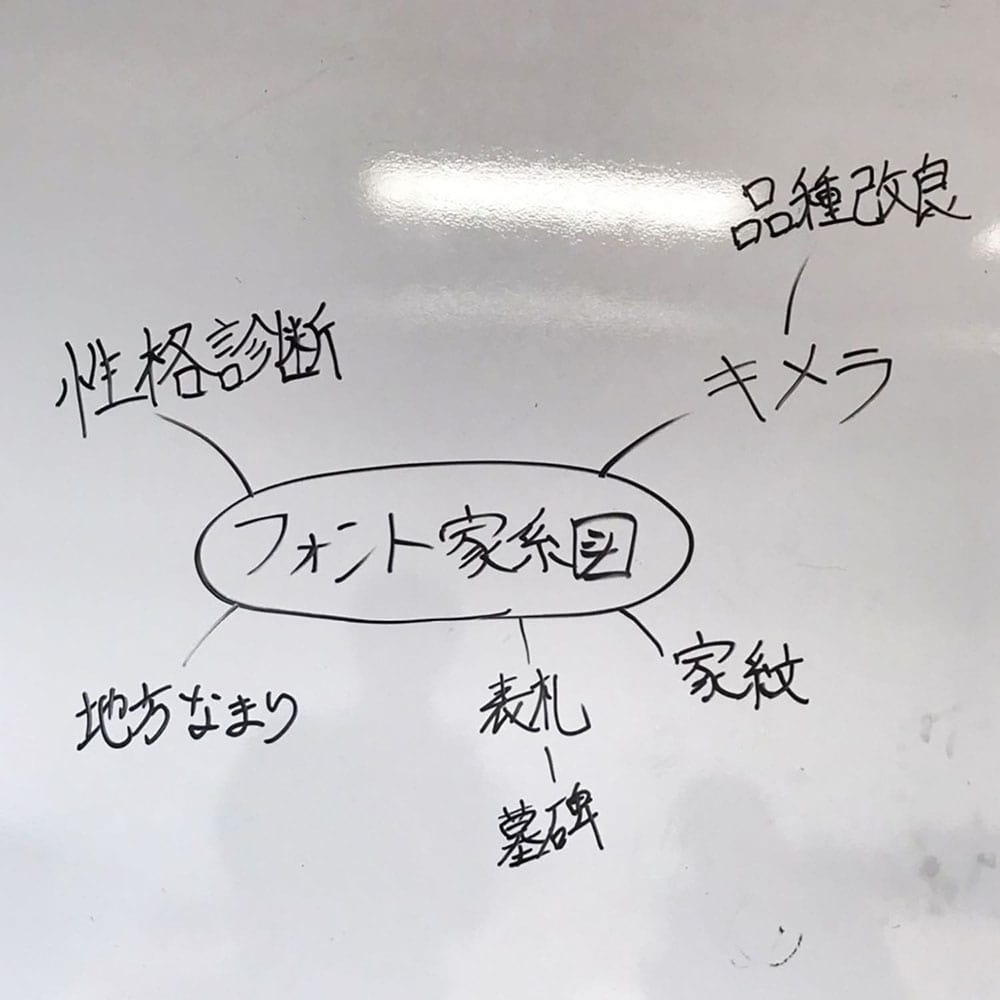 品種改良
性格診断
キメラ
フォント家系図
家紋
地方なまり
表札
墓碑